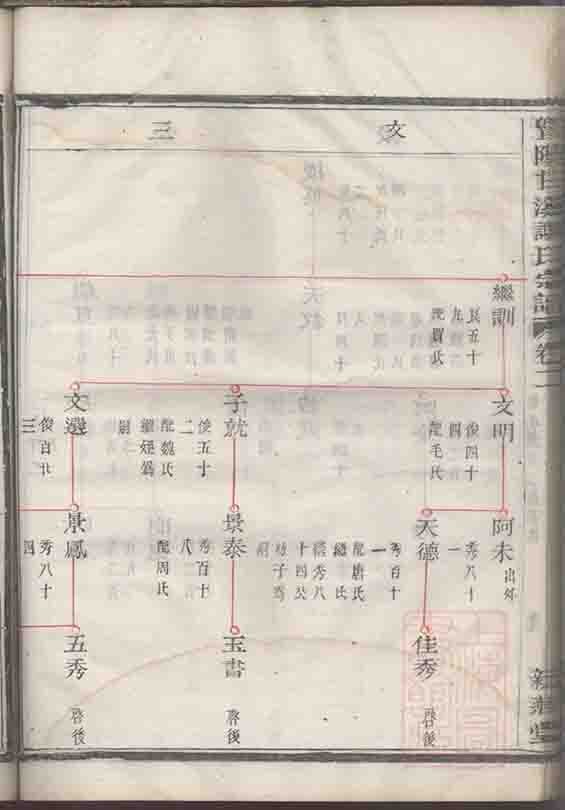 暨陽甘溪譚氏宗譜 卷二
文 三
繼訓
良五十
九
配賈氏
文明
俊四十
四
配毛氏
子就
俊五十
二
配魏氏
繼姪爲
嗣
文選
俊百廿
三
阿未 出外
秀八十
一
天德
秀百十
一
配唐氏
繼 氏
秀八
十四公
子秀
嗣
景泰
秀百十
八
配周氏
景鳳
秀八十
四
佳秀 啓後
玉書 啓後
五秀 啓後